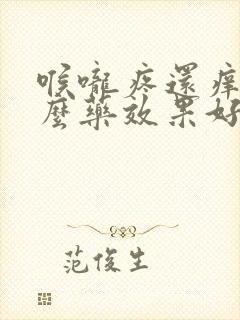 喉嚨疼還痒
麼藥效果好
范俊生